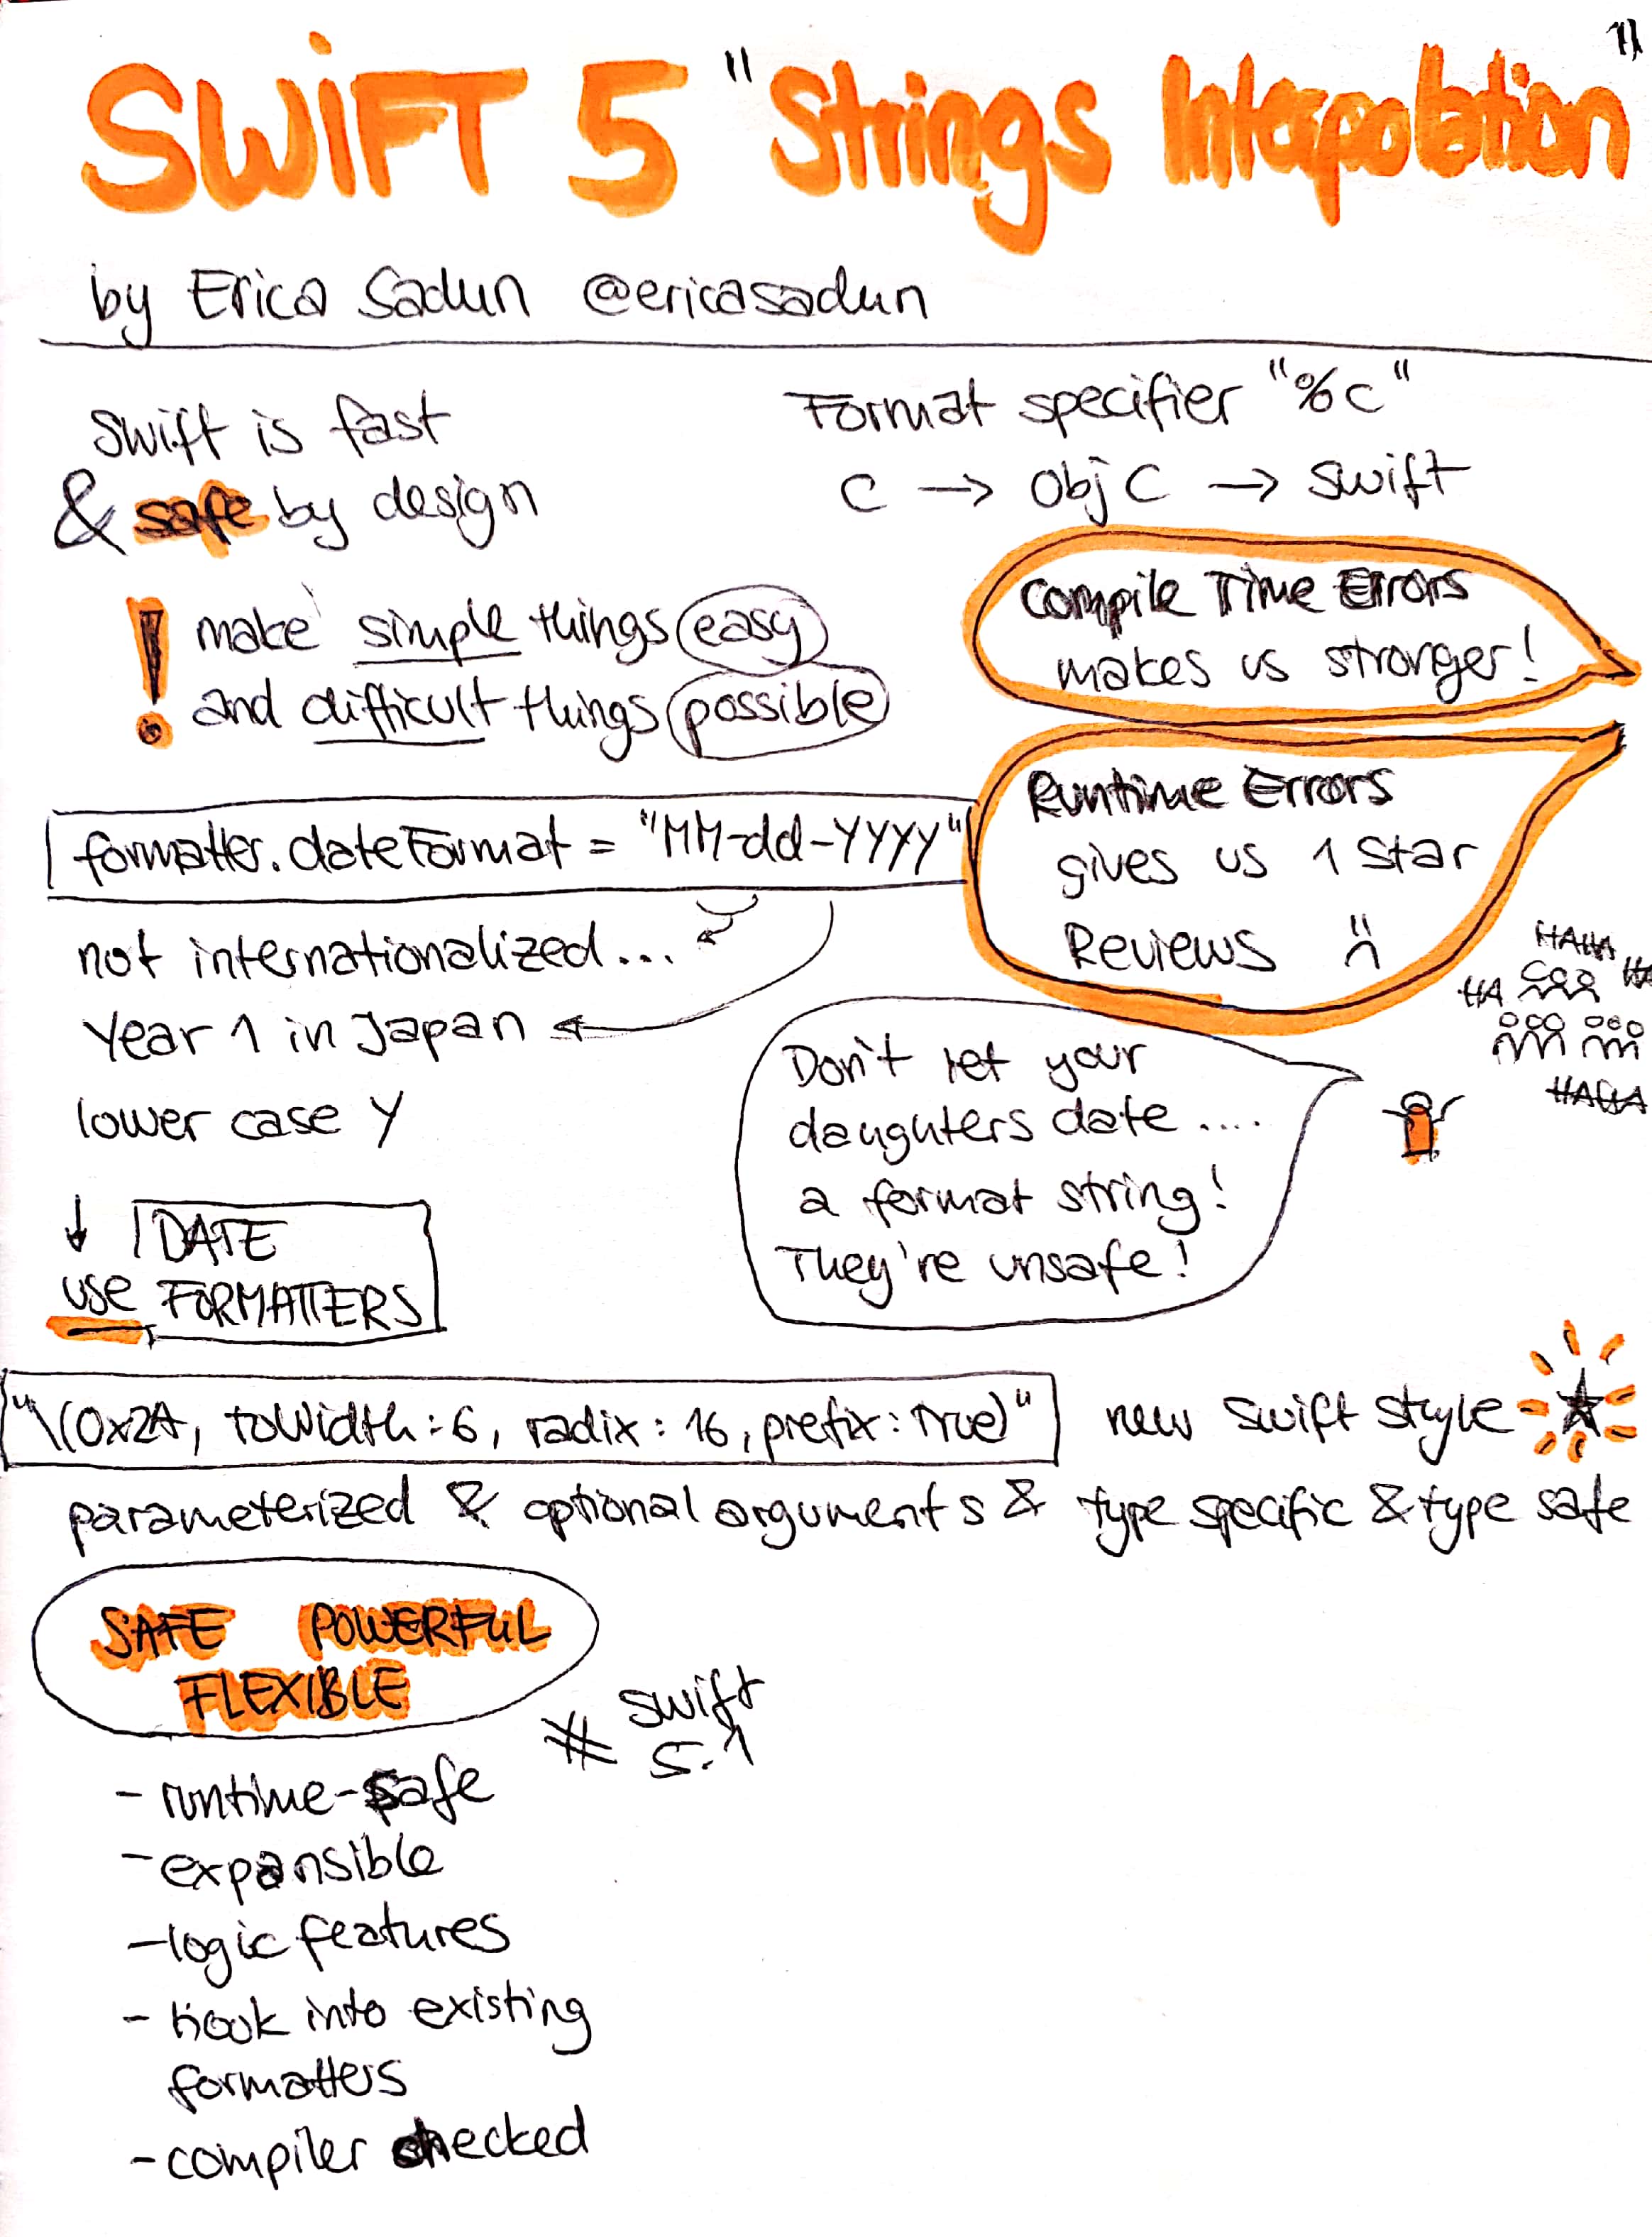 SWIFT 5 "Strings Interpolation"
by Erica Sadun @ericasadun
Swift is fast
& safe by design
Format specifier "%c"
C → Obj C → Swift
! make simple things easy
and difficult things possible
Compile Time Errors
makes us stronger!
formatter.dateFormat = "MM-dd-YYYY"
Runtime Errors
gives us 1 Star
Reviews :(
not internationalized...
Year 1 in Japan
lower case y
HAHA
HA
HA
HAHA
Don't let your
daughters date ....
a format string!
They're unsafe!
↓ DATE
use FORMATTERS
"\(0x2A, toWidth:6, radix: 16, prefix: True)"
new Swift style
parameterized & optional arguments & type specific & type safe
SAFE POWERFUL
FLEXIBLE
# Swift
5.1
- runtime-safe
- expansible
- logic features
- hook into existing
formatters
- compiler checked